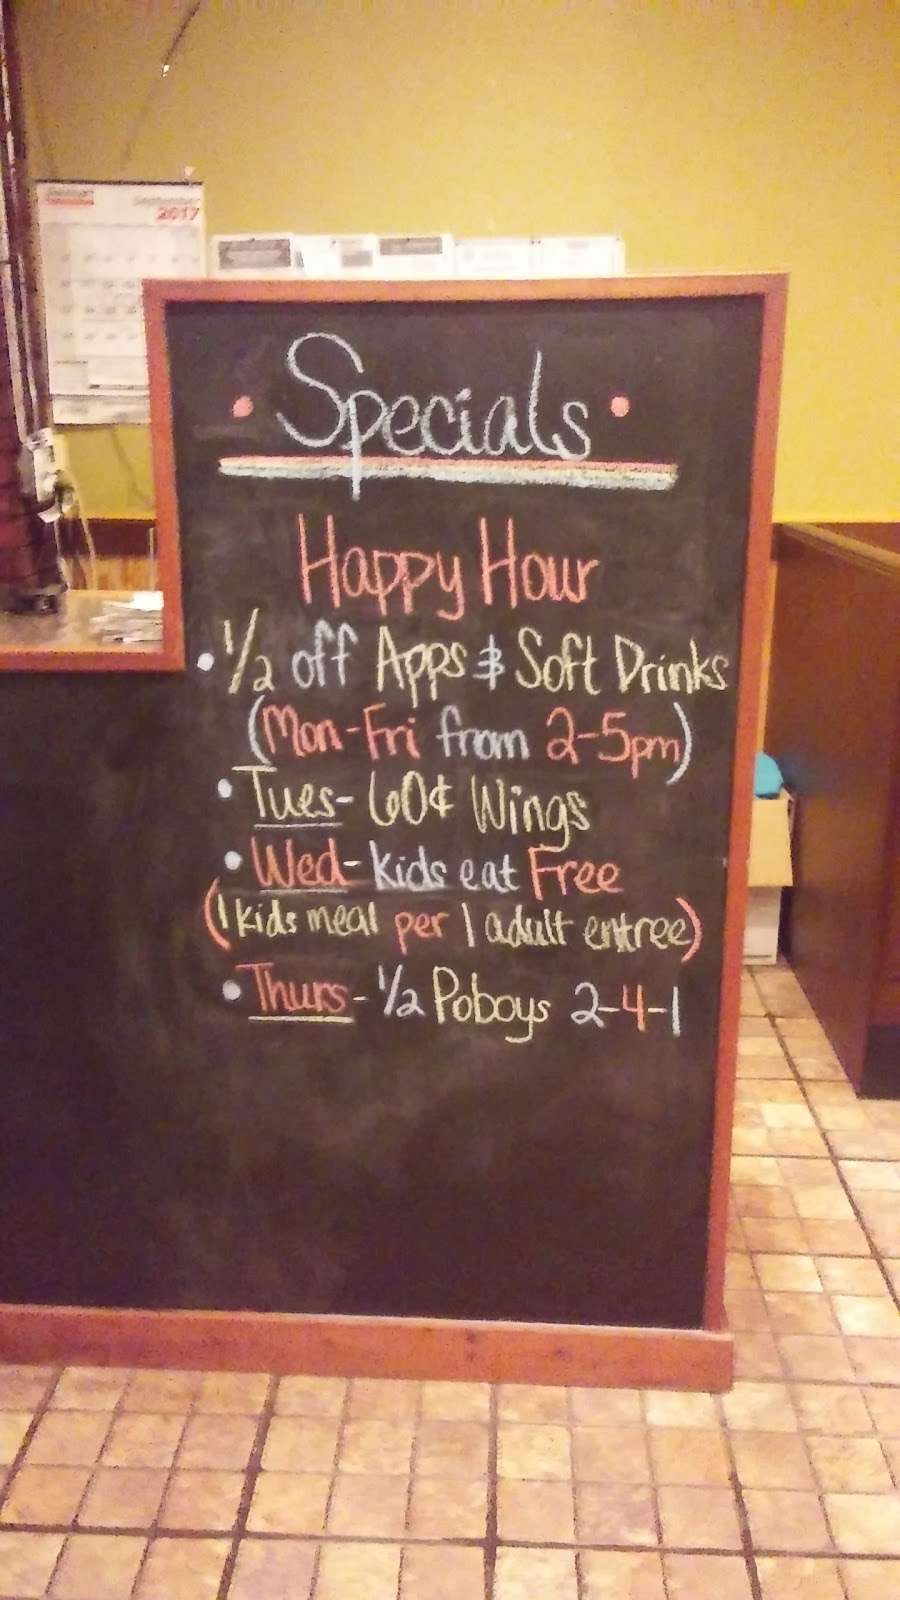 September
2017
Specials
Happy Hour
• 1/2 off Apps & Soft Drinks
(Mon-Fri from 2-5pm)
• Tues- 60¢ Wings
• Wed- kids eat Free
(1 kids meal per 1 adult entree)
• Thurs- 1/2 Poboys 2-4-1